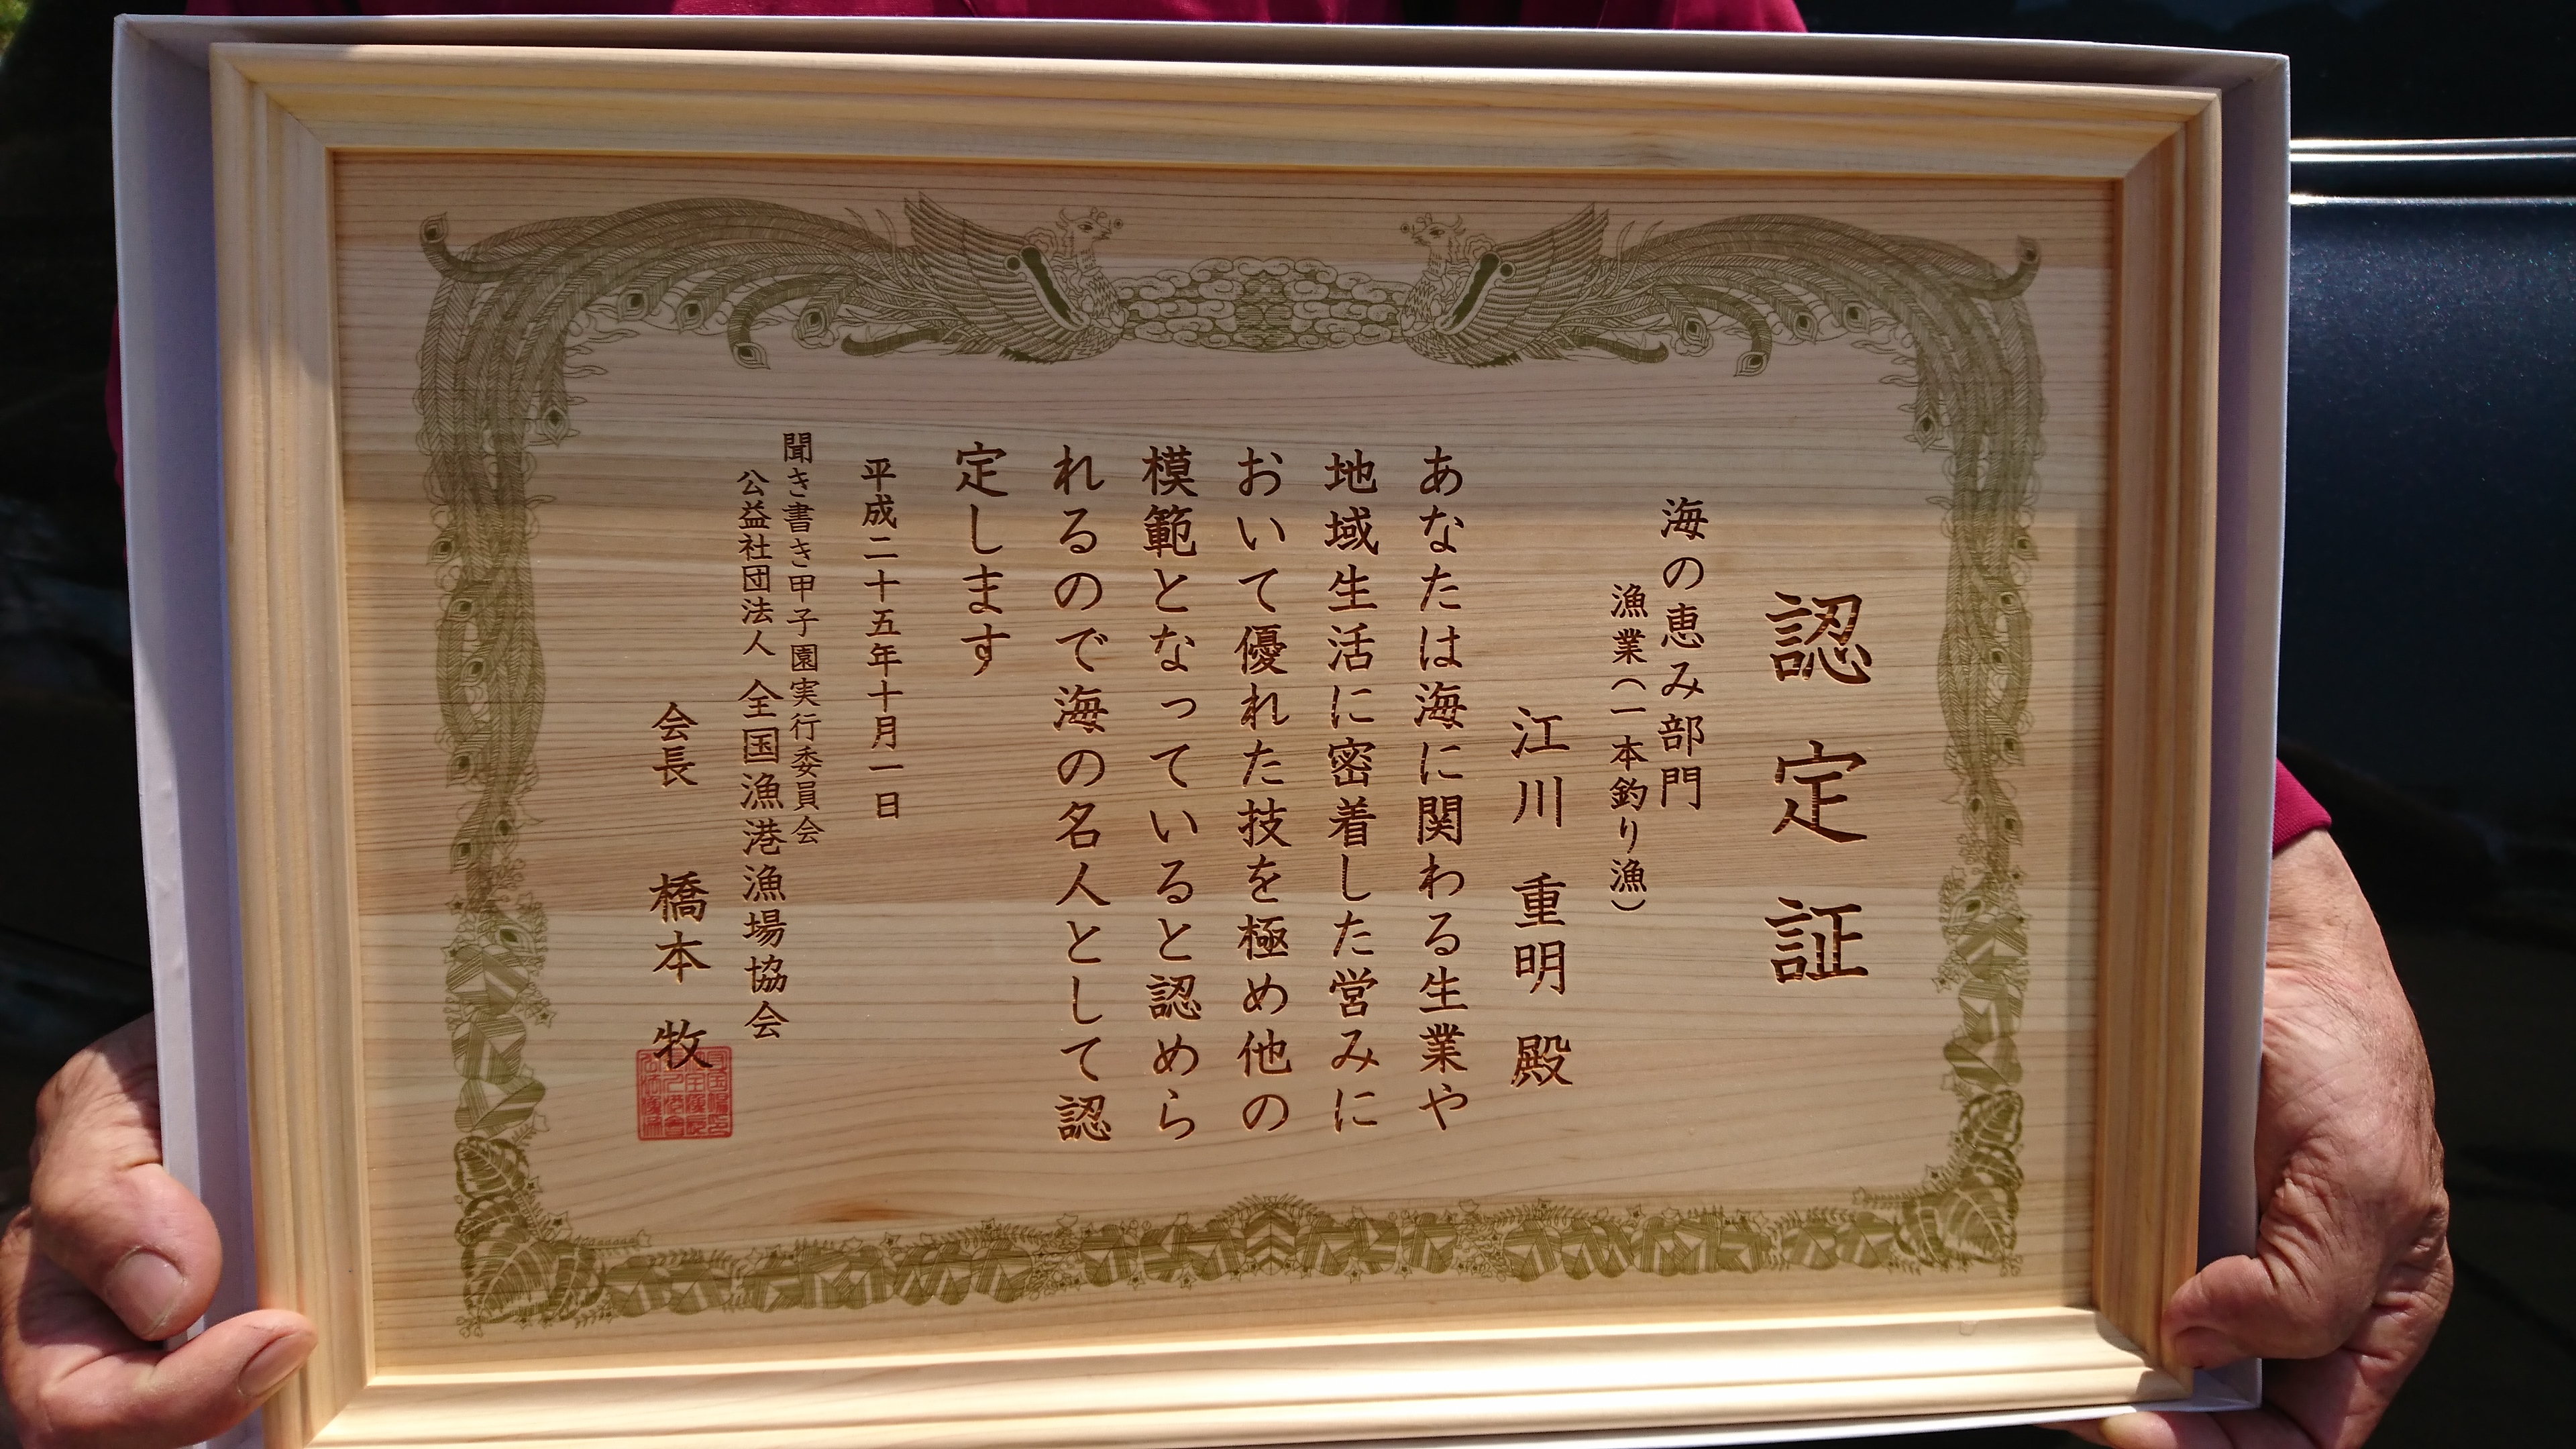 認定証
海の恵み部門
漁業(一本釣り漁)
江川 重明 殿
あなたは海に関わる生業や
地域生活に密着した営みに
おいて優れた技を極め他の
模範となっていると認めら
れるので海の名人として認
定します
平成二十五年十月一日
聞き書き甲子園実行委員会
公益社団法人 全国漁港漁場協会
会長 橋本 牧